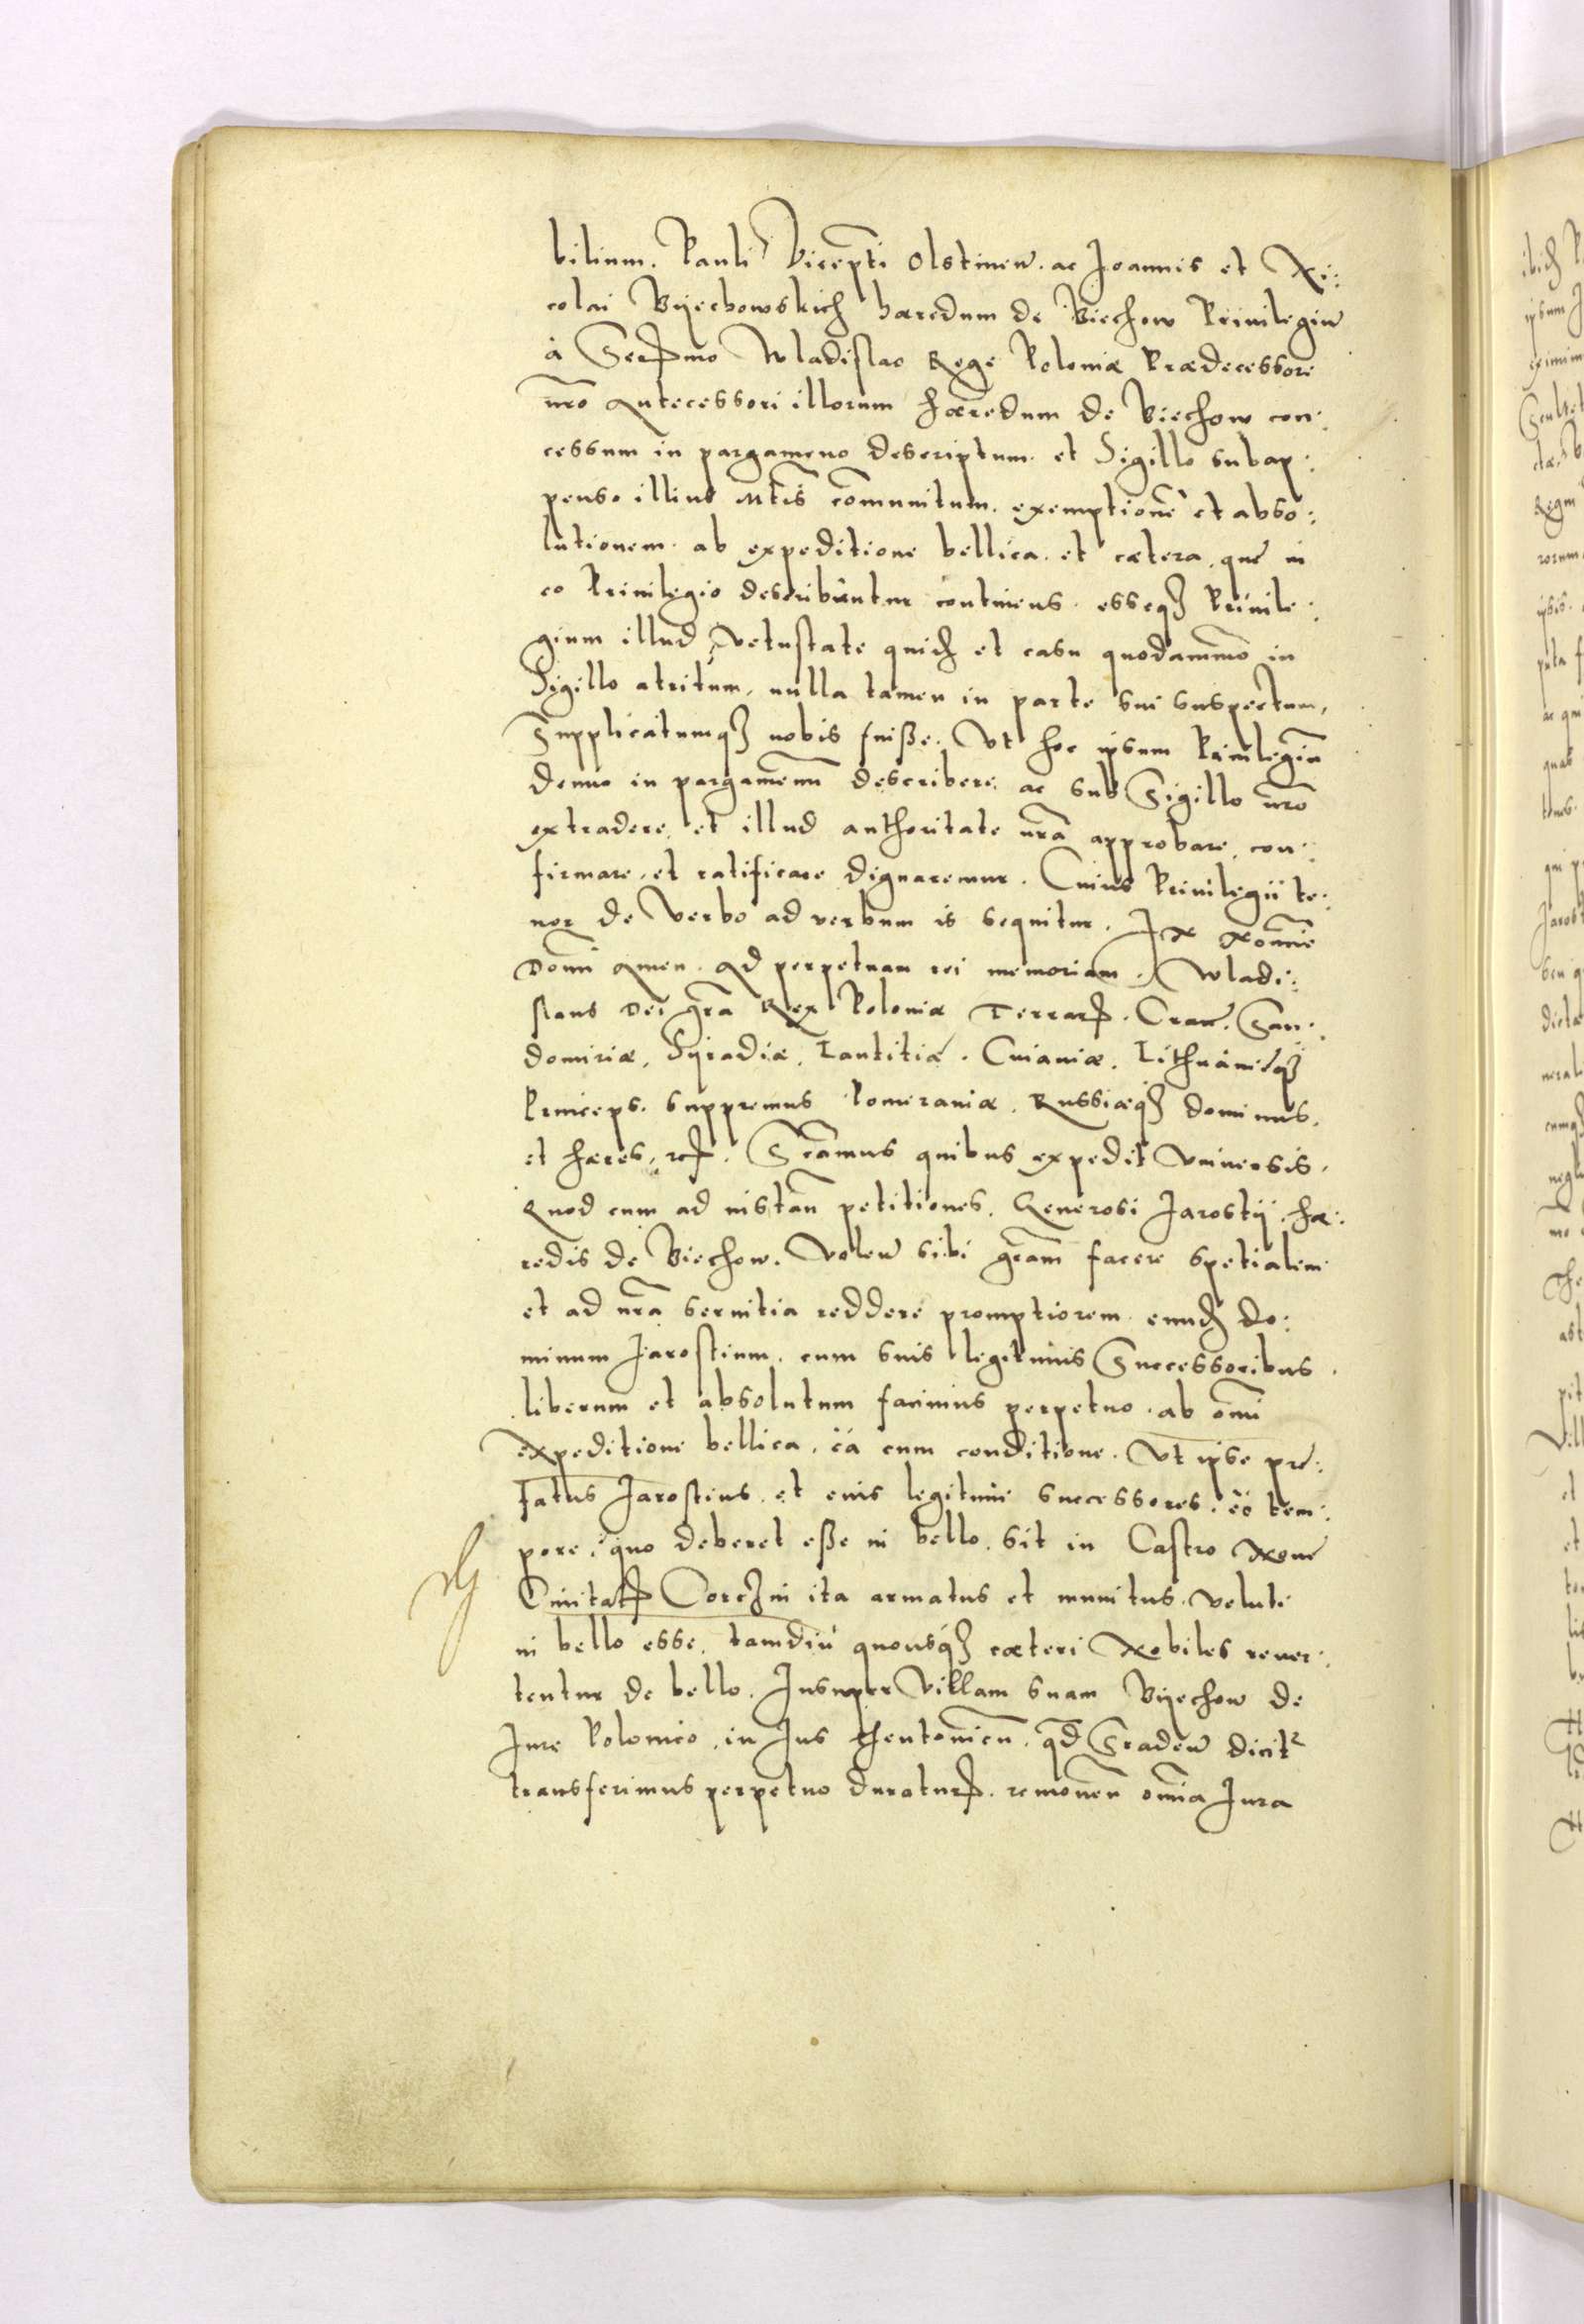 bilium. Pauli Vicepti Olstinen. ac Joannis et Ni:
colai Byechowskich hæredum de Biechow Privilegiu
à Serpmo Wladislao Rege Poloniæ Prædecessore
nro Antecessori illorum hæredum de Biechow con:
cessum in pargameno descriptum. et Sigillo subap:
penso illius Mtis comunitum. exemptione et abso:
lutionem. ab expeditione bellica. et cætera. que in
eo Privilegio describuntur continens. esseq3 Privile:
gium illud vetustate quid et casu quodammo in
Sigillo atritum. nulla tamen in parte sui suspectum,
Supplicatumq3 nobis fuiße. Vt hoc ipsum Privilegiu
denuo in pargamenu describere. ac sub Sigillo nro
extradere. et illud authoritate nra approbare. con:
firmare. et ratificare dignaremur. Cuius Privilegii te:
nor de verbo ad verbum is sequitur. IN Nomine
Domi Amen. Ad perpetuam rei memoriam. Wladi:
slaus Dei gra Rex Poloniæ Terrarp. Crac. San:
domiriæ, Syradiæ, Lantitiæ. Cuiaviæ. Lithuaniæq3
Princeps. suppremus Pomeraniæ. Russiæq3 dominus.
et hæres, etc. Scamus quibus expedit vniversis.
Quod cum ad instan petitiones. Generosi Jarostii. hæ:
redis de Biechow. Volen sibi gram facere spetialem
et ad nra servitia reddere promptiorem. eund do:
minum Jarostium. cum suis legitimis Successoribus.
liberum et absolutum facimus perpetuo. ab omi
expeditioni bellica. ea cum conditione. Vt ipse pre:
fatus Jarostius. et euis legitimi successores. eo tem:
pore. quo deberet eße in bello. sit in Castro Nove
Civitatp Corczin ita armatus et munitus. veluti
in bello esse. tamdiu quousq3 cæteri Nobiles rever:
tentur de bello. Insuper Villam suam Byechow de
Jure Polonico. in Jus theutonicu. qd Sraden dicit
transferimus perpetuo duraturp. removen omia Jura